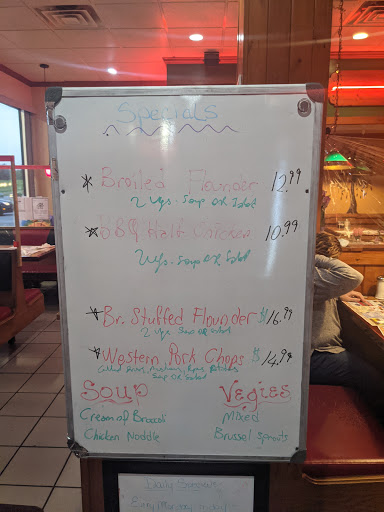 Specials
* Broiled Flounder 12.99
2 Vgs. Soup or Salad
* BBQ Half Chicken 10.99
2 Vgs. Soup or Salad
* Br. Stuffed Flounder $16.99
2 Vgs Soup or Salad
* Western Pork Chops $14.99
Soup or Salad
Soup Vegies
Cream of Broccoli Mixed
Chicken Noddle Brussel Sprouts
Daily Specials